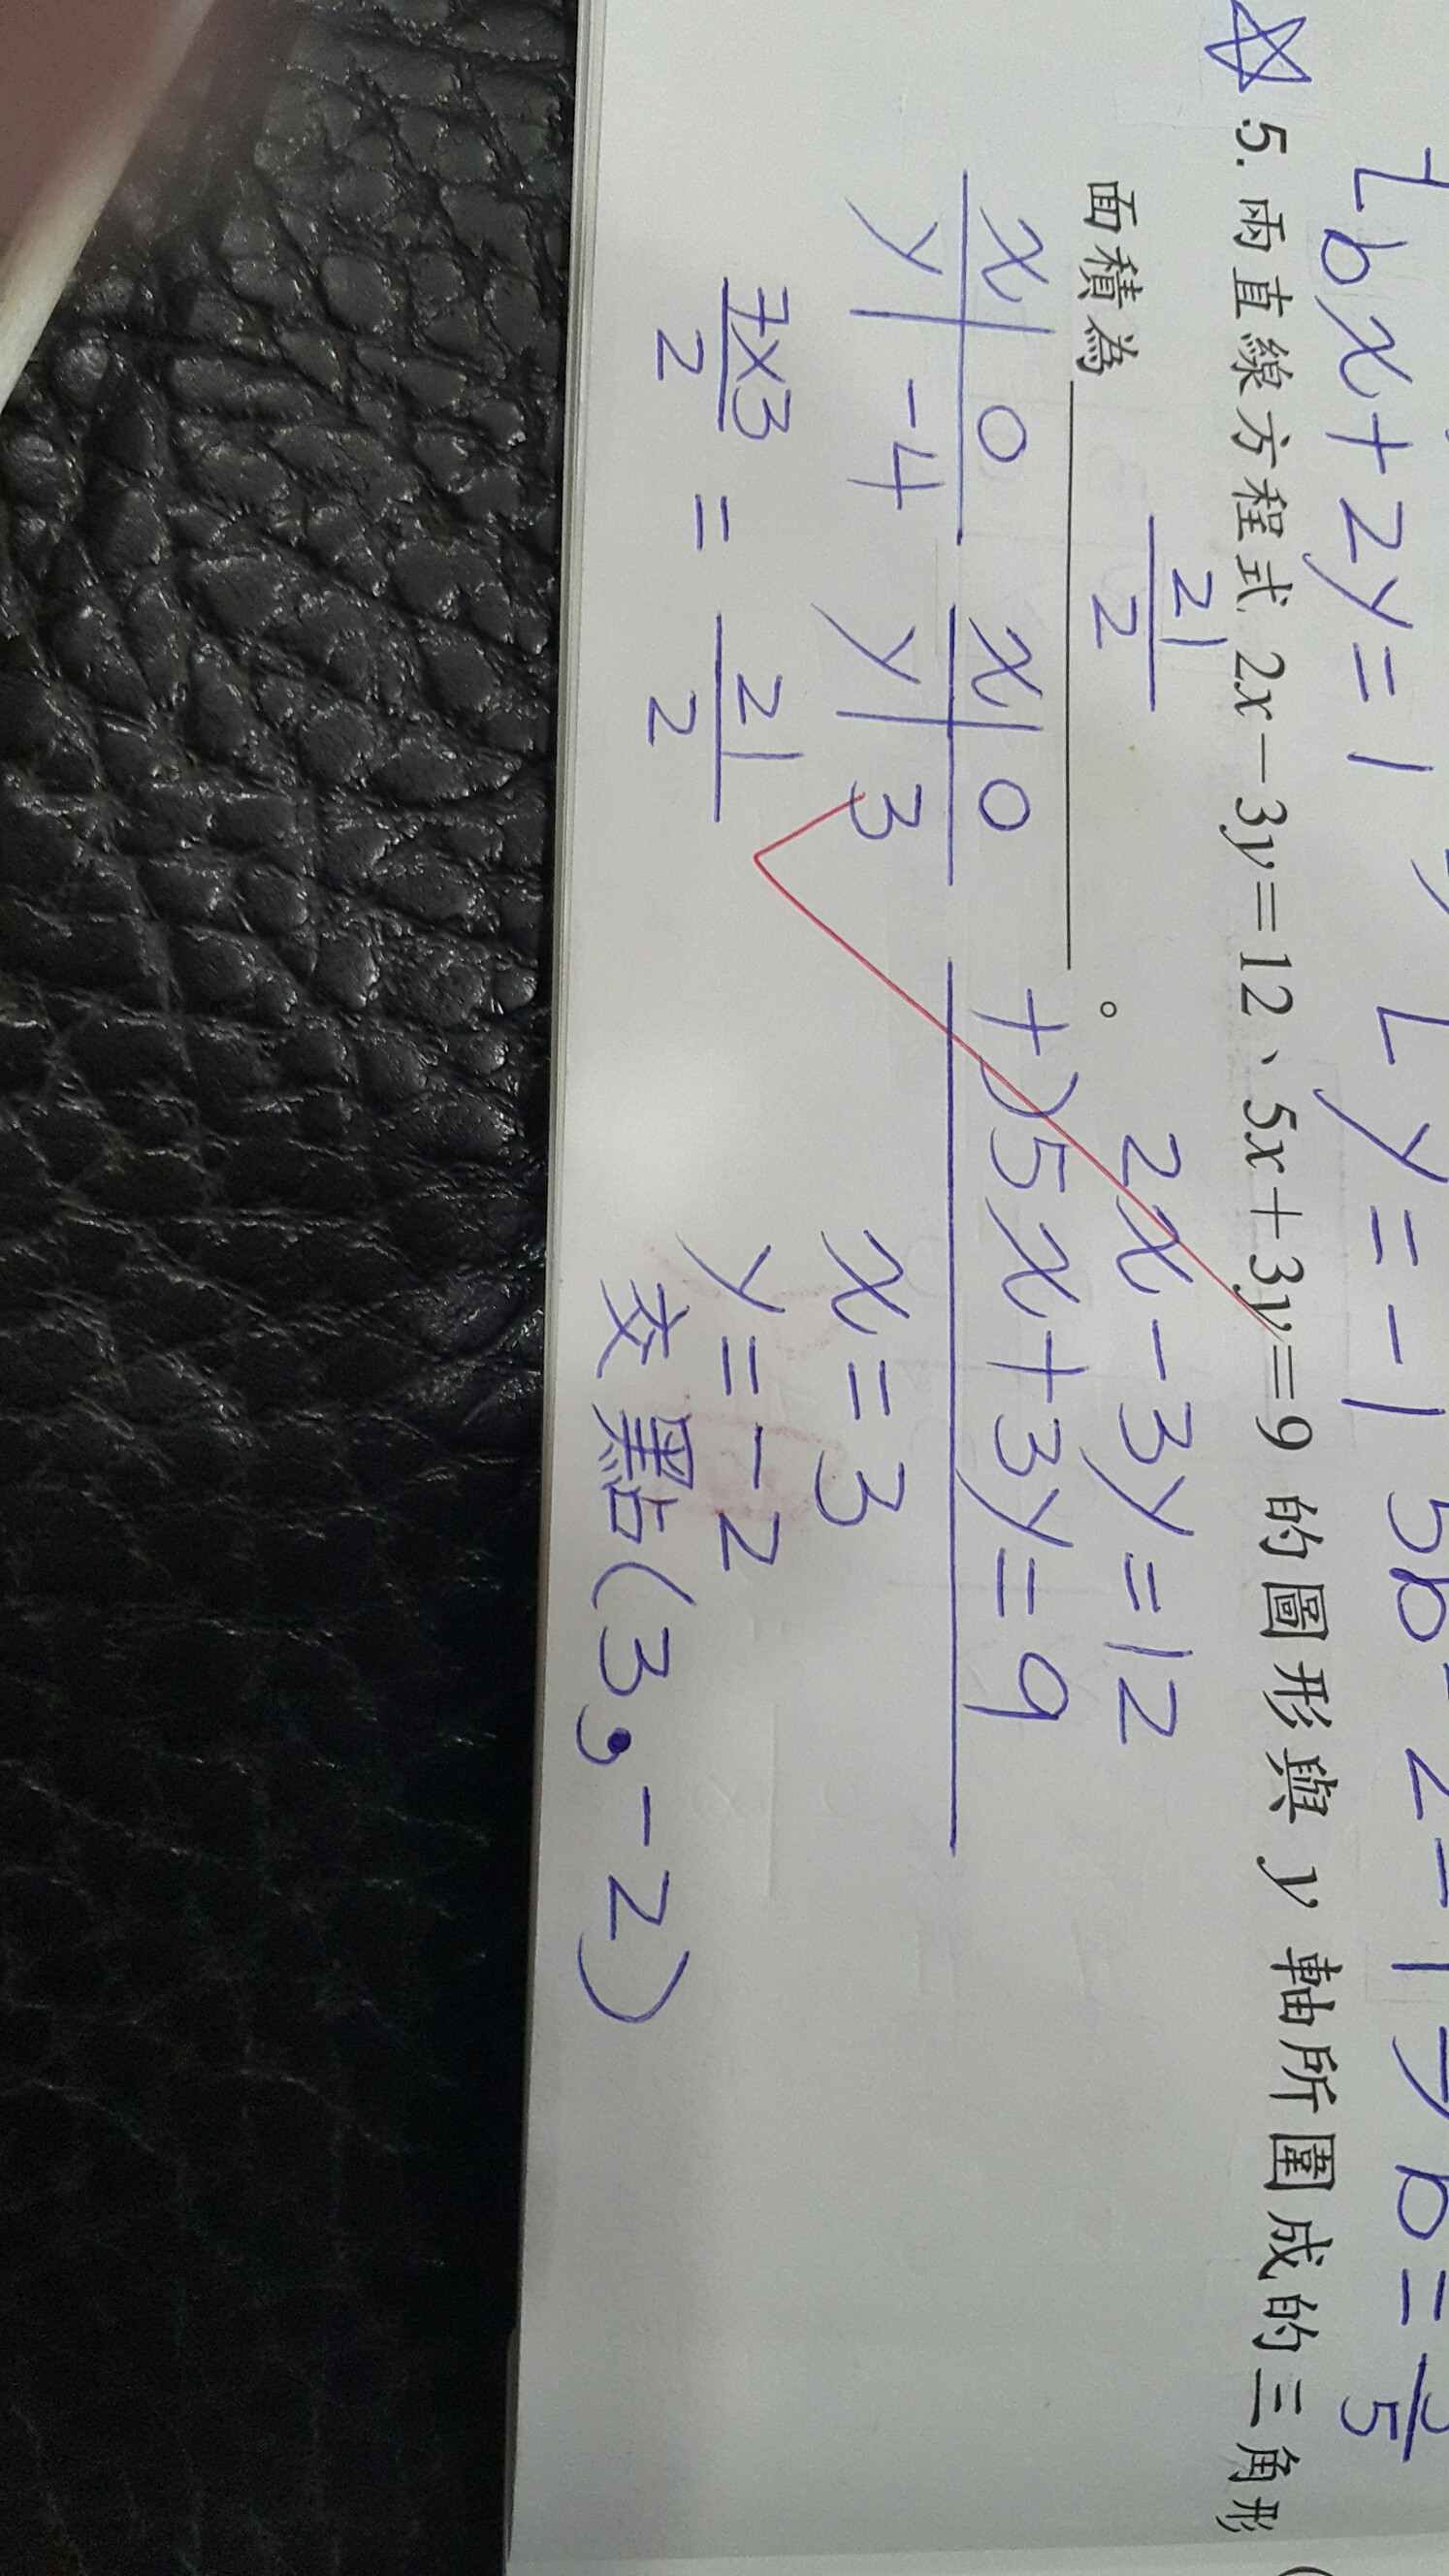 bx+2y=1
y=-1
☆ 5. 兩直線方程式 2x－3y＝12、5x＋3y＝9 的圖形與 y 軸所圍成的三角形
面積為 21/2 。
x | 0
y | -4
x | 0
y | 3
2x-3y=12
+) 5x+3y=9
x=3
y=-2
交點(3,-2)
7×3/2 = 21/2